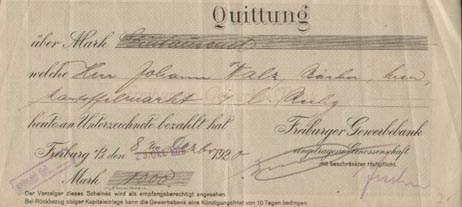 Quittung
über Mark Eintausend
welche Herr Johann Walz, Bäcker, hier,
Kartoffelmarkt
heute an Unterzeichnete bezahlt hat
Freiburger Gewerbebank
eingetragene Genossenschaft
mit beschränkter Haftpflicht.
Freiburg i/B den 8. 1920
Mark 1000
Der Vorzeiger dieses Scheines wird als empfangsberechtigt angesehen.
Bei Rückbezug obiger Kapitaleinlage kann die Gewerbebank eine Kündigungsfrist von 10 Tagen bedingen.